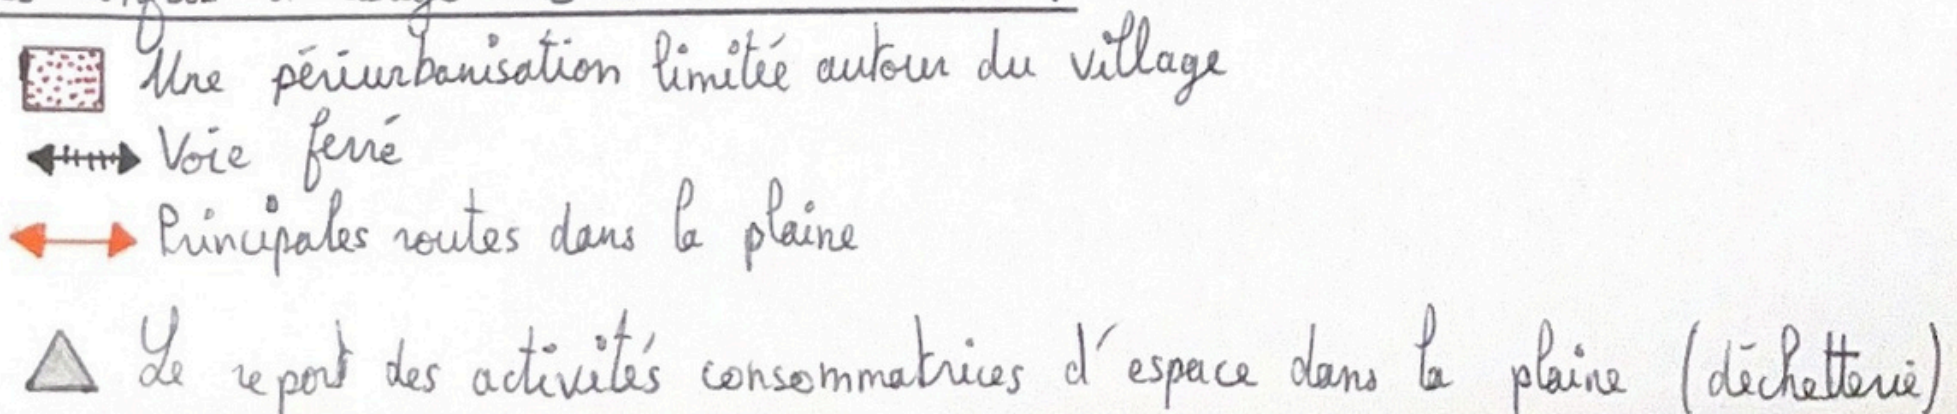 Une périurbanisation limitée autour du village
Voie ferré
Principales routes dans la plaine
Le report des activités consommatrices d'espace dans la plaine (déchetterie)